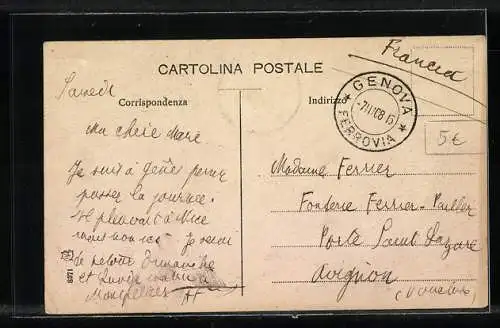 Francia
CARTOLINA POSTALE
Corrispondenza
Indirizzo
GENOVA
FERROVIA
5€
Samedi
Ma chère
Je suis à Gênes pour
passer la journée.
Il pleuvait à Nice
mais non ici Je serai
de retour dimanche
et lundi matin à
Montpellier
8971
Madame Ferrier
Fonderie Ferrier-
Porte Saint Lazare
Avignon
(Vaucluse)